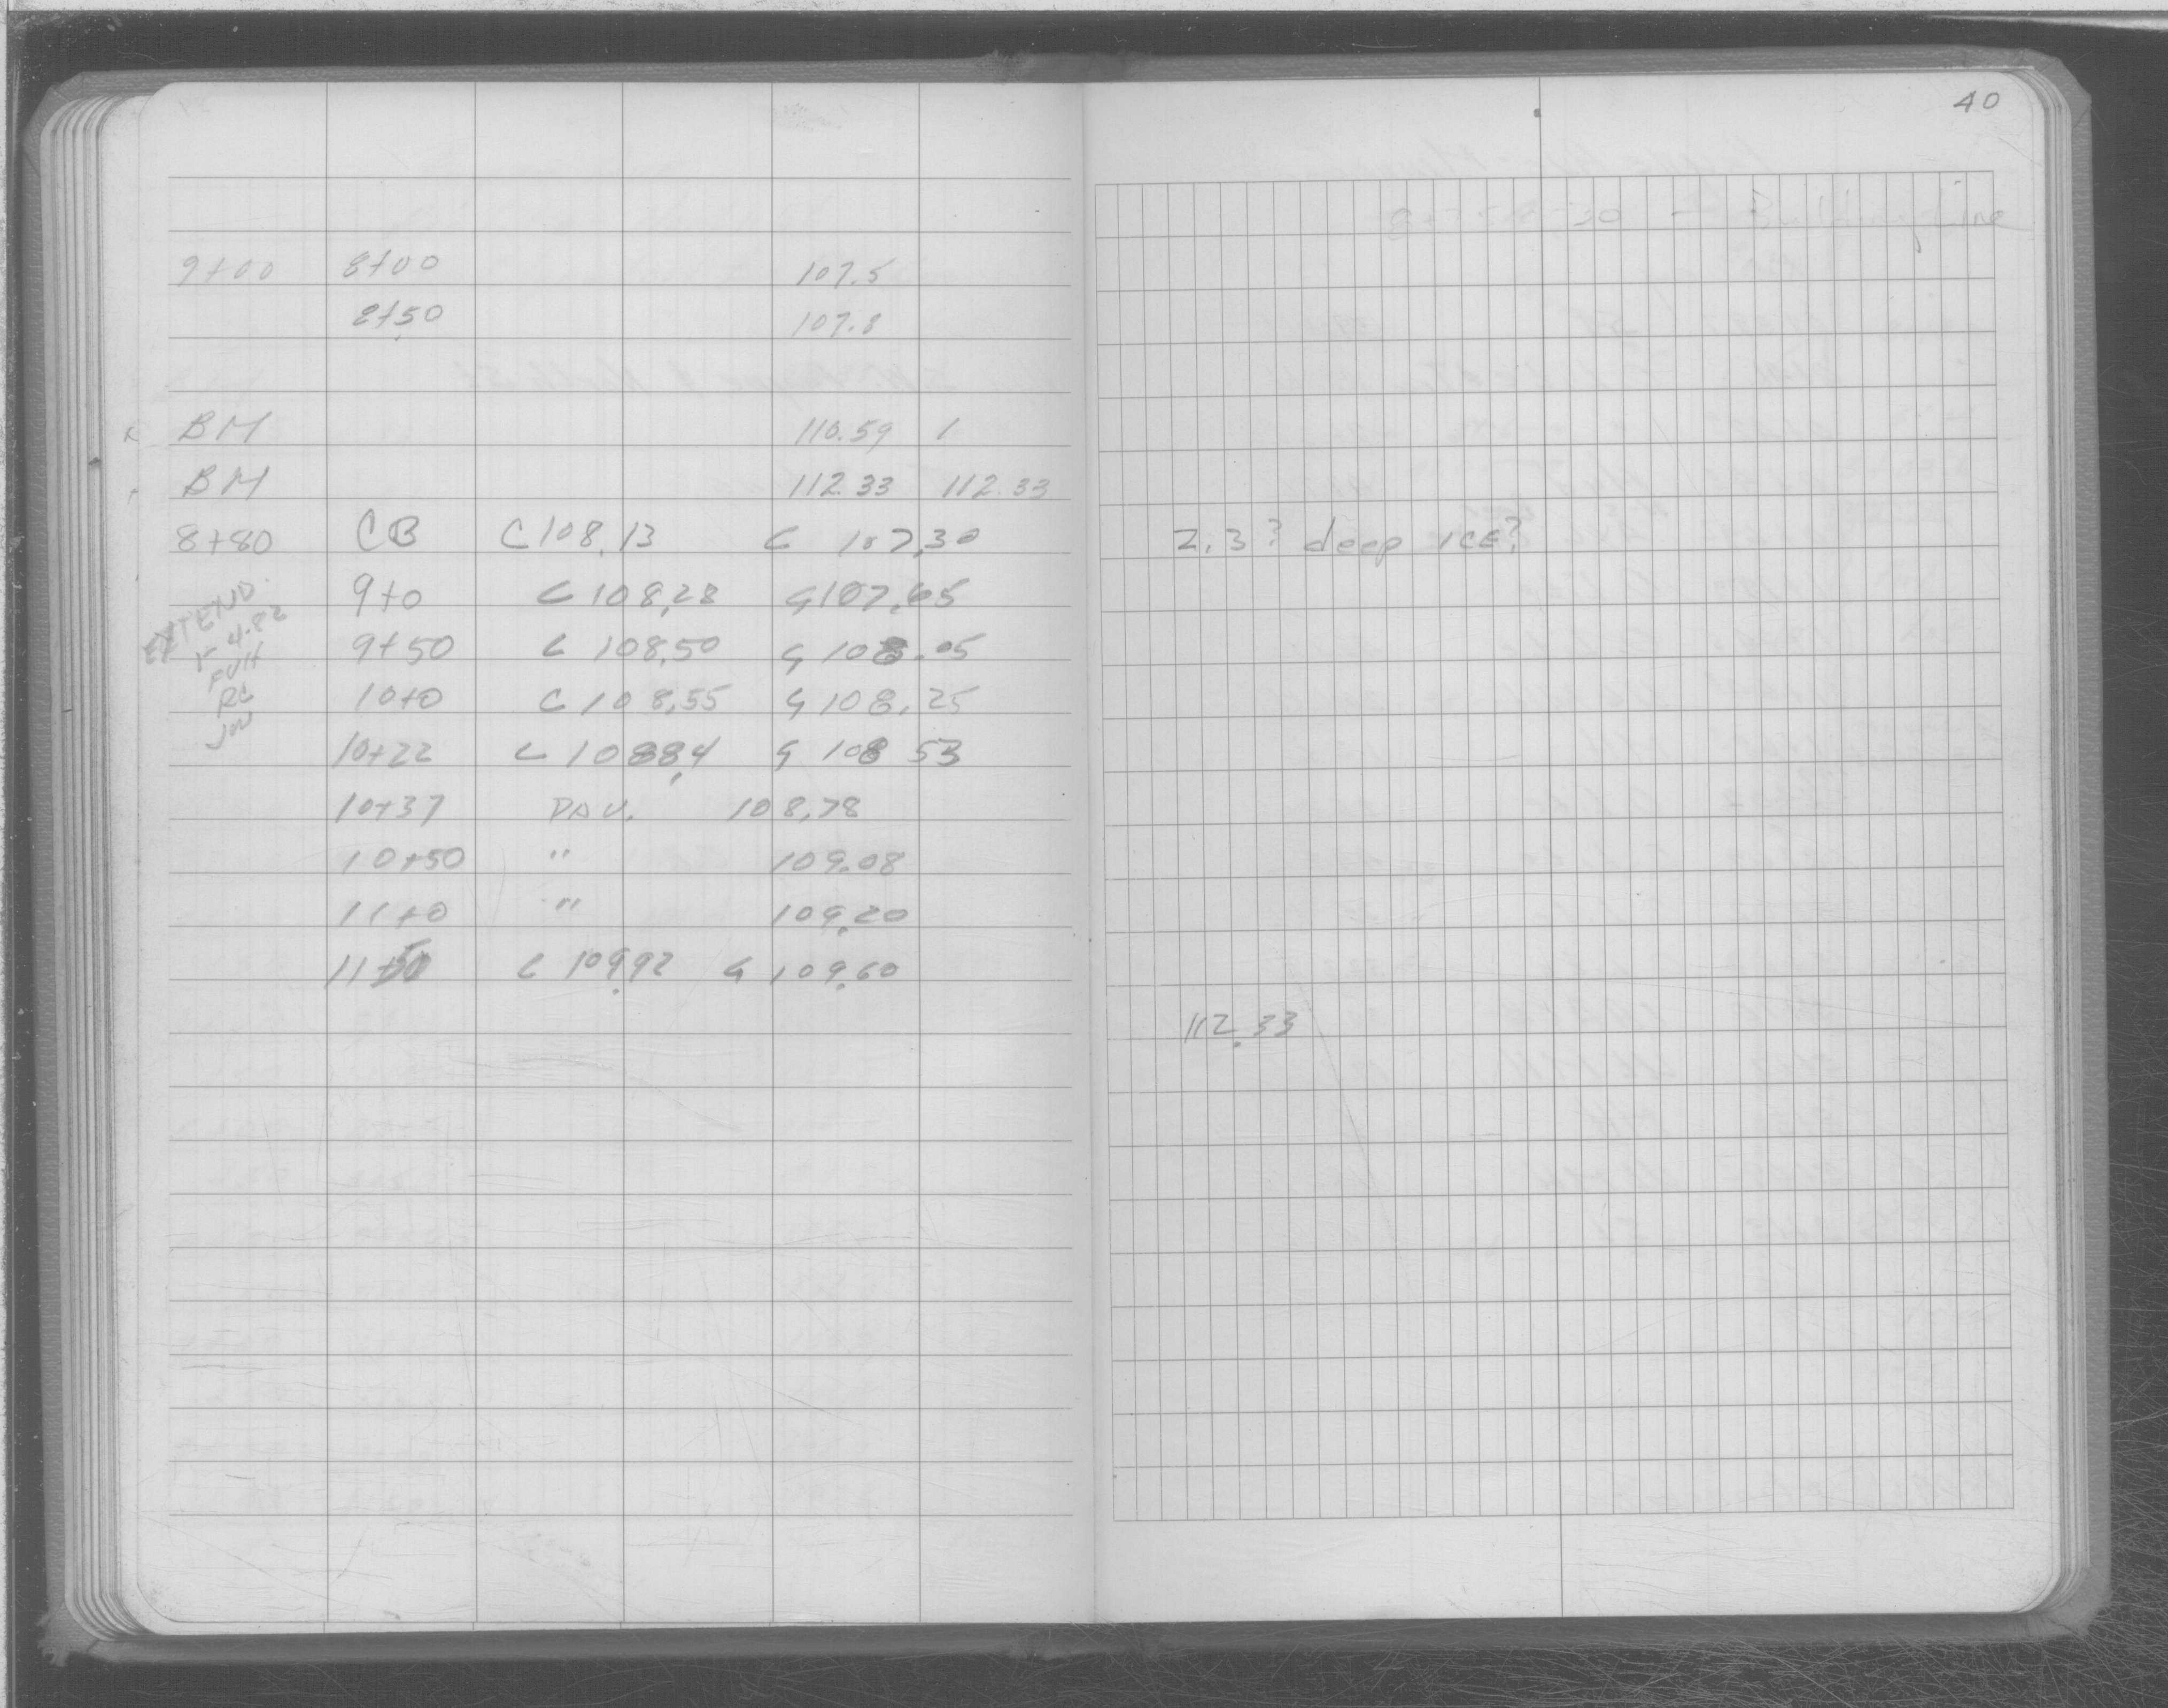 40
9+00 8+00 107.5
8+50 107.8
BM 110.59 1
BM 112.33 112.33
8+80 CB C 108.13 G 107.30 2.3? deep ICE?
9+0 C 108.28 G 107.65
EXTEND
1-4-82
9+50 C 108.50 G 108.05
FVH
RC
10+0 C 108.55 G 108.25
JW
10+22 C 108.84 G 108 53
10+37 PAV. 108.78
10+50 " 109.08
11+0 " 109.20
11+50 C 109.92 G 109.60
112.33